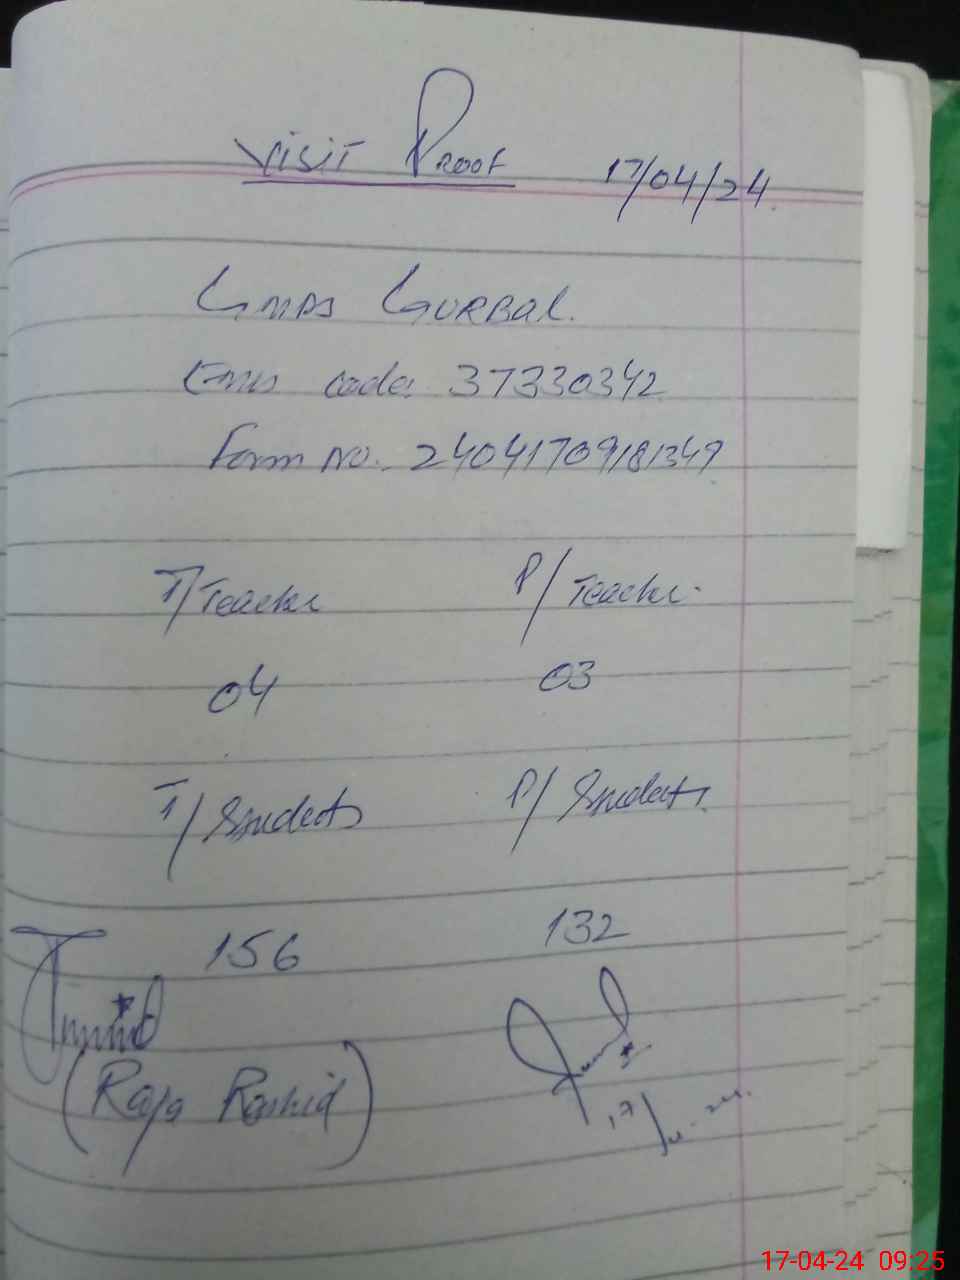 Visit Proof 17/04/24
GMPS GURBAL.
Emis code: 37330342
Form No. 24041709181349
T/Teacher P/Teacher.
04 03
T/Students P/Students.
156 132
(Raja Rashid)
17/4.24.
17-04-24 09:25